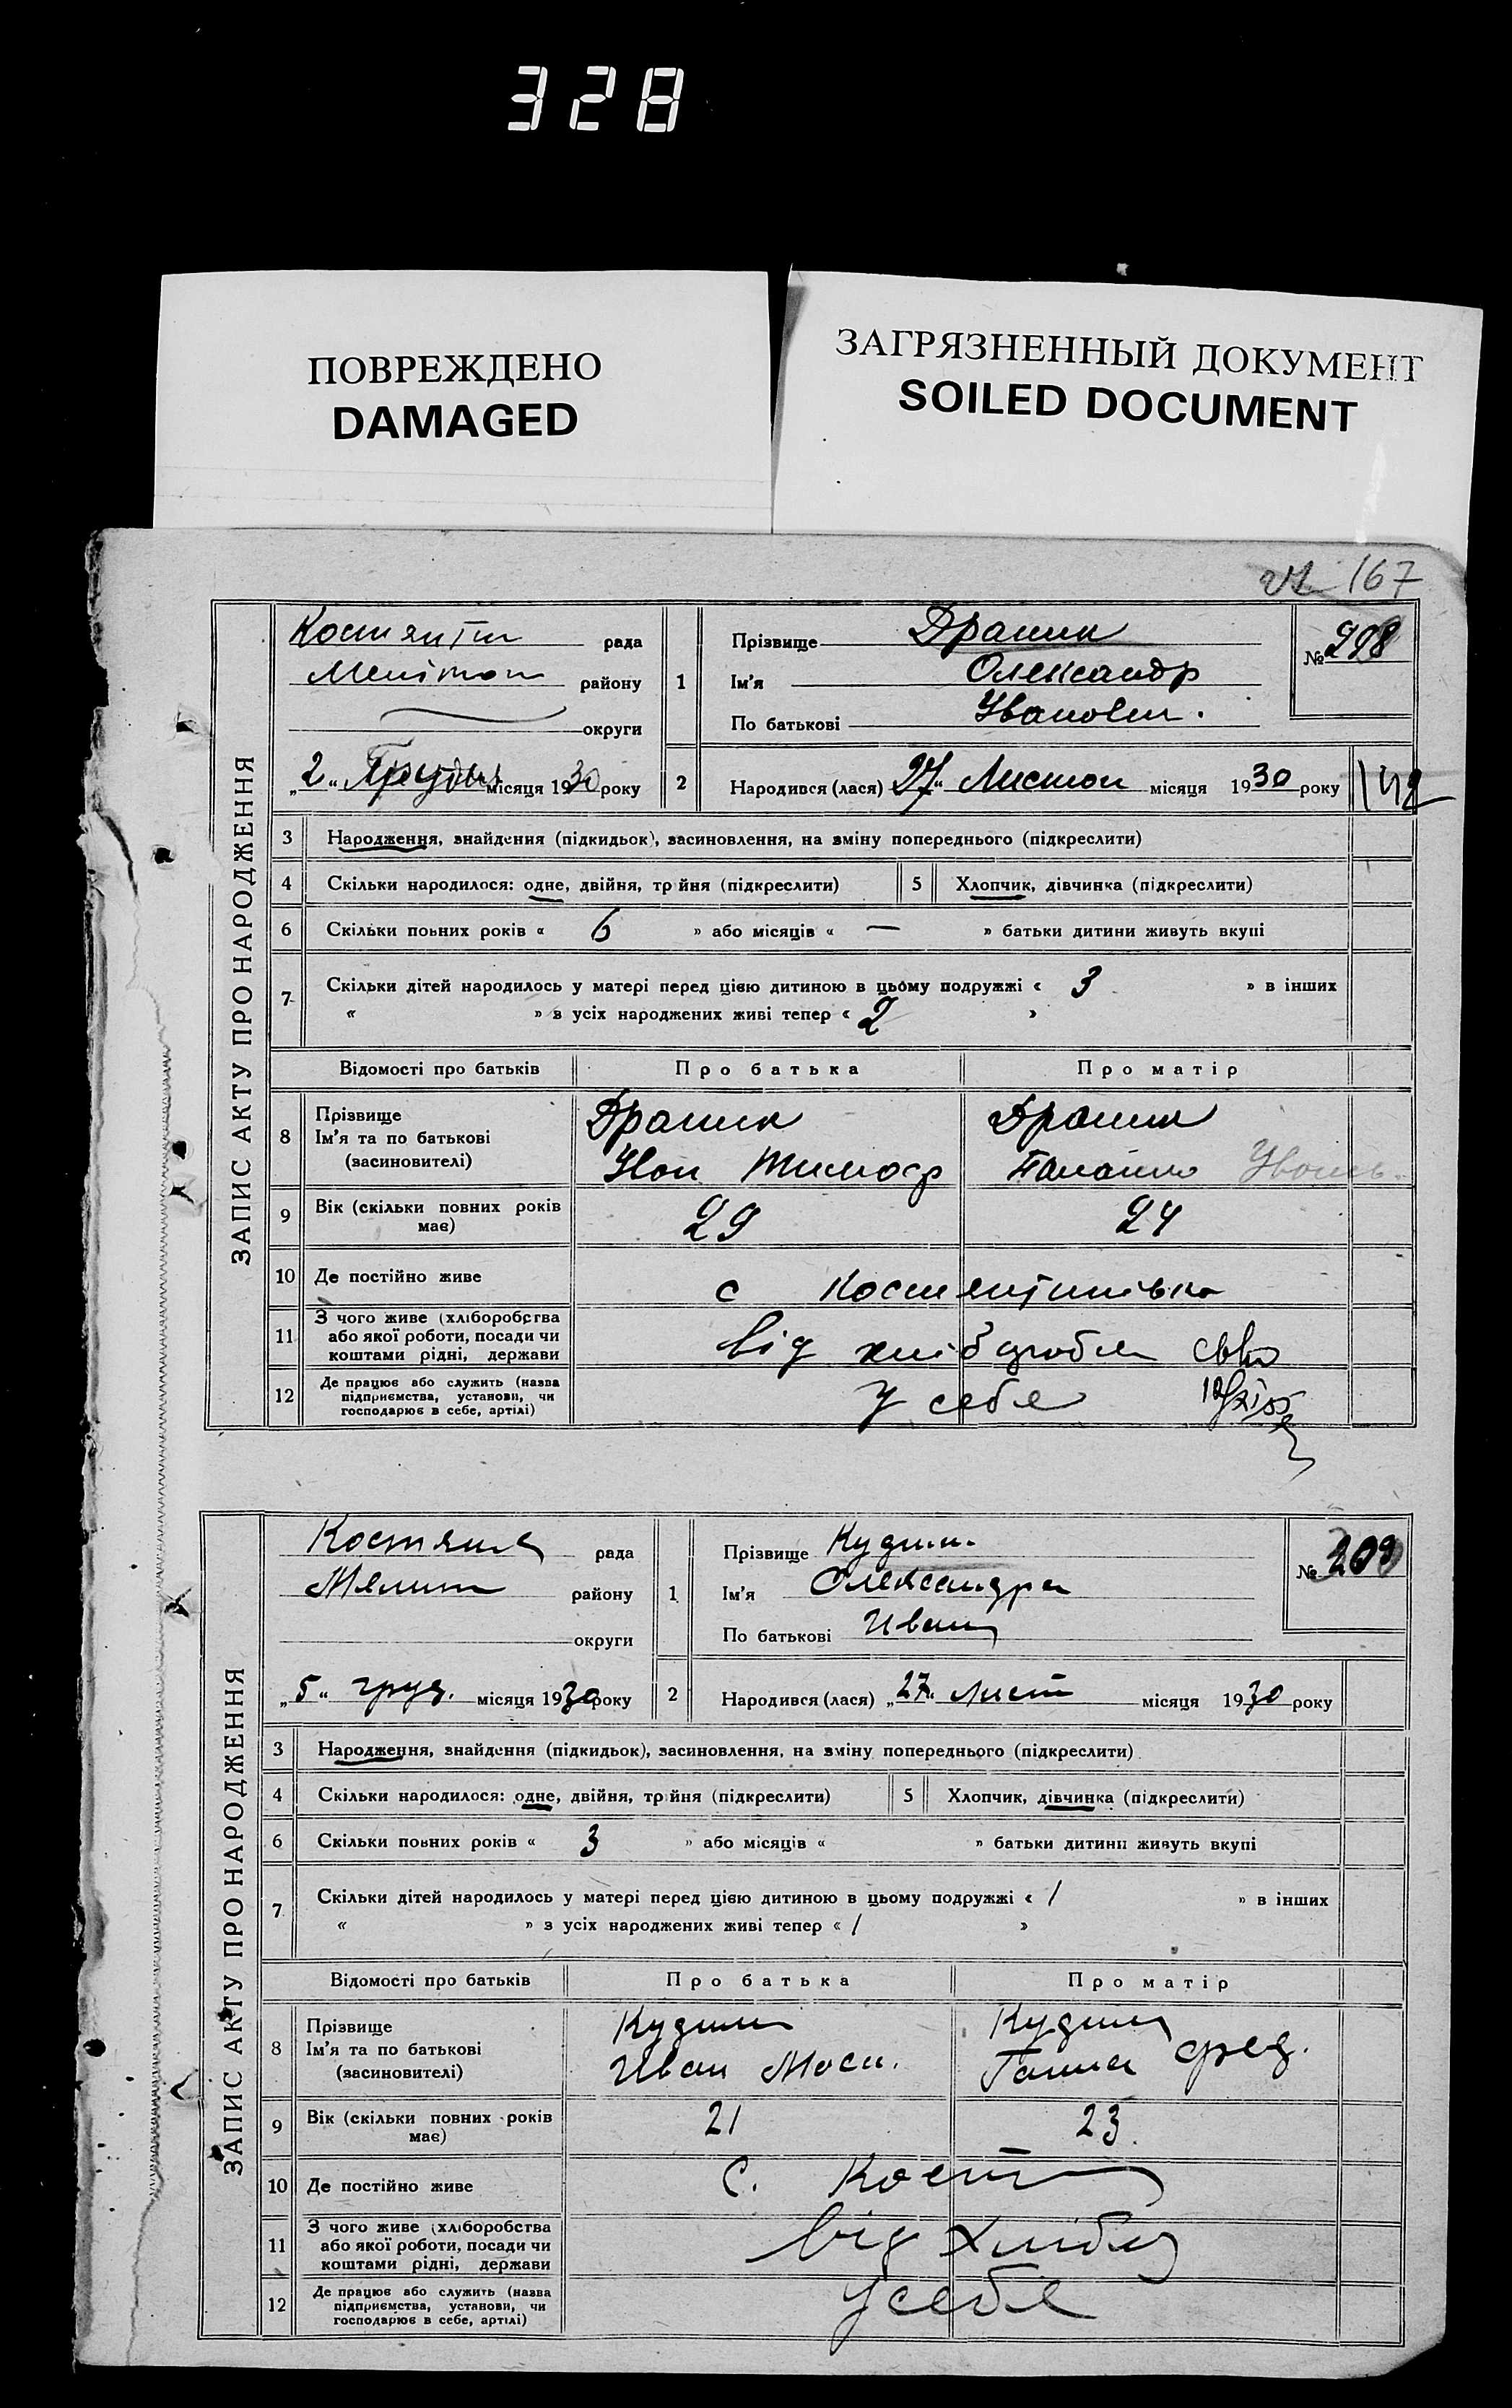 328
ПОВРЕЖДЕНО
DAMAGED
ЗАГРЯЗНЕННЫЙ ДОКУМЕНТ
SOILED DOCUMENT
167
ЗАПИС АКТУ ПРО НАРОДЖЕННЯ
Костянтин рада
Мелітоп району
округи
„2“ Грудня місяця 1930 року
1 Прізвище Драник
Ім'я Олександр
По батькові Иванович.
№ 208
2 Народився (лася) „27“ Листоп місяця 1930 року
3 Народження, знайдення (підкидьок), засиновлення, на зміну попереднього (підкреслити)
4 Скільки народилося: одне, двійня, трійня (підкреслити)
5 Хлопчик, дівчинка (підкреслити)
6 Скільки повних років « 6 » або місяців « — » батьки дитини живуть вкупі
7 Скільки дітей народилось у матері перед цією дитиною в цьому подружжі « 3 » в інших
« » з усіх народжених живі тепер « 2 »
Відомості про батьків Про батька Про матір
8 Прізвище
Ім'я та по батькові
(засиновителі)
Драник
Тимоф
Драник
9 Вік (скільки повних років має)
29 24
10 Де постійно живе
с Костянтинівка
11 З чого живе (хліборобства
або якої роботи, посади чи
коштами рідні, держави
від хліб
12 Де працює або служить (назва
підприємства, установи, чи
господарює в себе, артілі)
У себе
ЗАПИС АКТУ ПРО НАРОДЖЕННЯ
Костянт рада
Мелит району
округи
„5“ груд. місяця 1930 року
1 Прізвище Кудин.
Ім'я Олександра
По батькові Иван
№ 209
2 Народився (лася) „27“ Лист місяця 1930 року
3 Народження, знайдення (підкидьок), засиновлення, на зміну попереднього (підкреслити)
4 Скільки народилося: одне, двійня, трійня (підкреслити)
5 Хлопчик, дівчинка (підкреслити)
6 Скільки повних років « 3 » або місяців « » батьки дитини живуть вкупі
7 Скільки дітей народилось у матері перед цією дитиною в цьому подружжі « 1 » в інших
« » з усіх народжених живі тепер « 1 »
Відомості про батьків Про батька Про матір
8 Прізвище
Ім'я та по батькові
(засиновителі)
Кудин
Иван Моси.
Кудин
Ганна Фед.
9 Вік (скільки повних років має)
21 23
10 Де постійно живе
С. Кост
11 З чого живе (хліборобства
або якої роботи, посади чи
коштами рідні, держави
від хліб
12 Де працює або служить (назва
підприємства, установи, чи
господарює в себе, артілі)
у себе